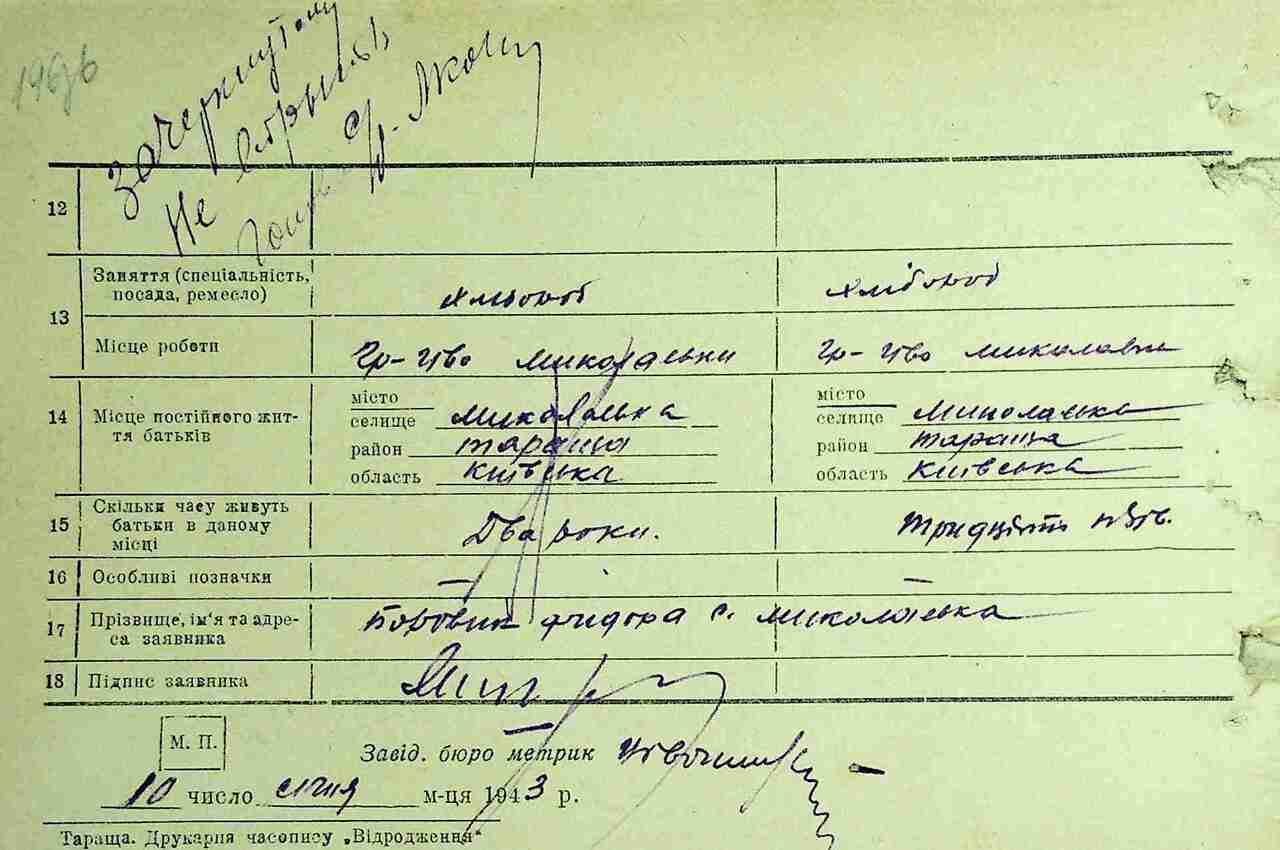 зачеркнутому
Не
гр.
12
Заняття (спеціальність, посада, ремесло)
хлібороб
хлібороб
13
Місце роботи
Гр-цтво
Гр-цтво
14
Місце постійного життя батьків
місто
селище Миколаївка
район Тараща
область Київська
місто
селище Миколаївка
район Тараща
область Київська
15
Скільки часу живуть батьки в даному місці
Два роки.
Тридцять
16
Особливі позначки
—
—
17
Прізвище, ім'я та адреса заявника
Боровик Фидора с. Миколаївка
18
Підпис заявника
М. П.
Завід. бюро метрик
10 число січня м-ця 1943 р.
Тараща. Друкарня часопису „Відродження“